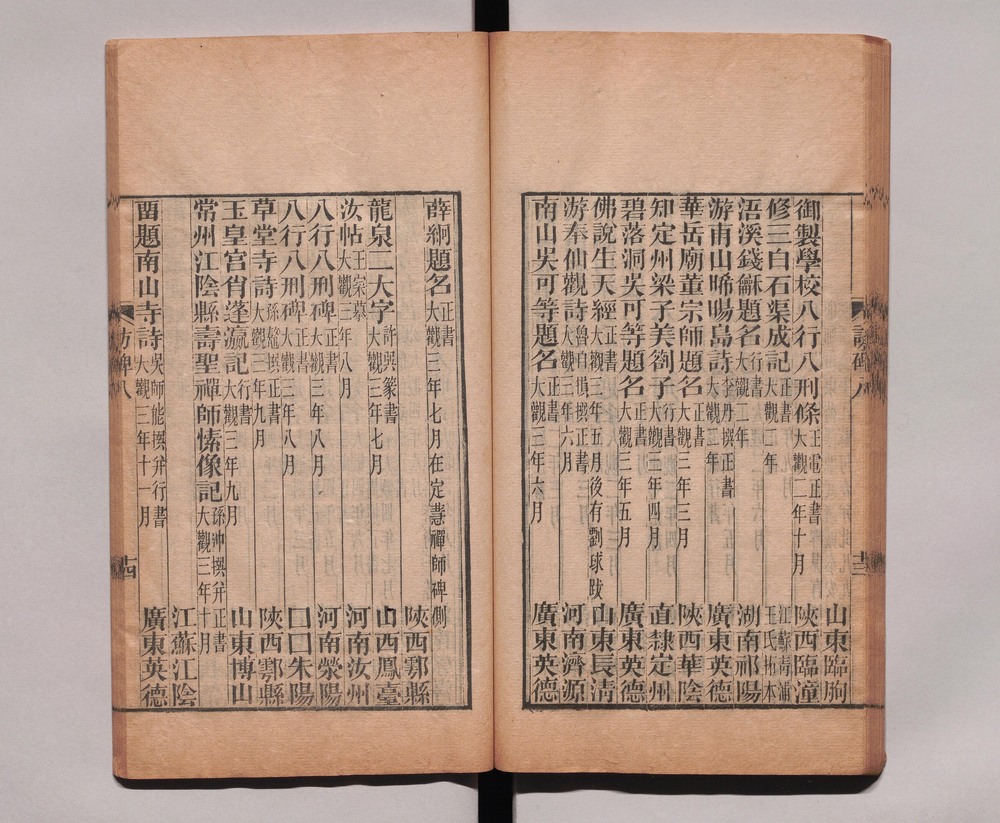 訪碑八 十三
山東臨朐
御製學校八行八刑條 正書 大觀二年十月 陝西臨潼
修三白石渠成記 正書 大觀二年 江蘇青浦王氏拓本
浯溪錢龢題名 行書 大觀二年 湖南祁陽
游南山晞暘島詩 李丹撰正書 大觀二年 廣東英德
華岳廟董宗師題名 正書 大觀三年三月 陝西華陰
知定州梁子美劄子 行書 大觀三年四月 直隸定州
碧落洞吳可等題名 正書 大觀三年五月 廣東英德
佛說生天經 正書 大觀三年五月後有劉球跋 山東長清
游奉仙觀詩 魯百 撰正書 大觀三年六月 河南濟源
南山吳可等題名 正書 大觀三年六月 廣東英德
薛絅題名 正書 大觀三年七月在定慧禪師碑側 陝西鄠縣
龍泉二大字 許巽篆書 大觀三年七月 山西鳳臺
汝帖 王寀摹 大觀三年八月 河南汝州
八行八刑碑 正書 大觀三年八月 河南滎陽
八行八刑碑 正書 大觀三年八月 □□朱陽
草堂寺詩 孫鼛撰正書 大觀三年九月 陝西鄠縣
玉皇宮肯蓬瀛記 行書 大觀三年九月 山東博山
常州江陰縣壽聖禪師愫像記 孫沖撰并正書 大觀三年十月 江蘇江陰
畱題南山寺詩 吳師能撰并行書 大觀三年十一月 廣東英德
訪碑八 十四